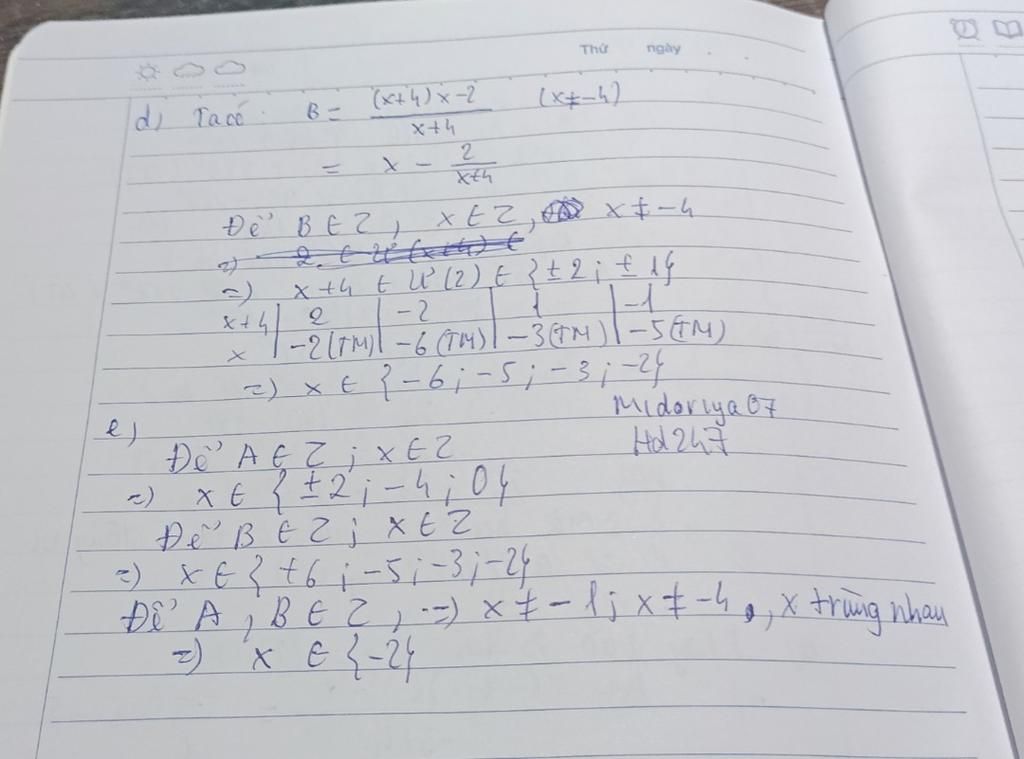 Thứ ngày
d) Ta có B = \frac{(x+4)x-2}{x+4} (x ≠ -4)
= x - \frac{2}{x+4}
Để B ∈ Z, x ∈ Z, x ≠ -4
=) x+4 ∈ Ư(2) ∈ {±2; ±1}
x+4 | 2 | -2 | 1 | -1
x | -2(TM) | -6(TM) | -3(TM) | -5(TM)
=) x ∈ {-6; -5; -3; -2}
Midoriya07
Hd247
e)
Để A ∈ Z; x ∈ Z
=) x ∈ {±2; -4; 0}
Để B ∈ Z; x ∈ Z
=) x ∈ {+6; -5; -3; -2}
Để A, B ∈ Z, =) x ≠ -1; x ≠ -4, x trùng nhau
=) x ∈ {-2}